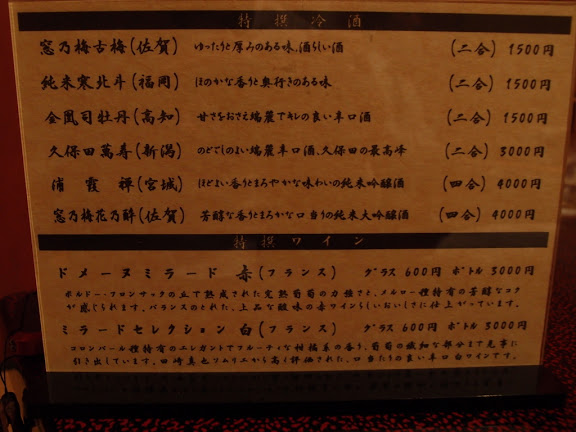 特撰冷酒
窓乃梅古梅(佐賀) ゆったりと厚みのある味、酒らしい酒 (二合) 1500円
純米寒北斗(福岡) ほのかな香りと奥行きのある味 (二合) 1500円
金凰司牡丹(高知) 甘さをおさえ端麗でキレの良い辛口酒 (二合) 1500円
久保田萬寿(新潟) のどごしのよい端麗辛口酒、久保田の最高峰 (二合) 3000円
浦霞禅(宮城) ほどよい香りとまろやかな味わいの純米吟醸酒 (四合) 4000円
窓乃梅花乃酔(佐賀) 芳醇な香りとまろやかな口当りの純米大吟醸酒 (四合) 4000円
特撰ワイン
ドメーヌミラード 赤(フランス) グラス 600円 ボトル 3000円
ボルドー・フロンサックの丘で熟成された完熟葡萄の力強さと、メルロー種特有の芳醇なコク
が感じられます。バランスのとれた、上品な酸味の赤ワインらしいおいしさに仕上がっています。
ミラードセレクション 白(フランス) グラス 600円 ボトル 3000円
コロンバール種特有のエレガントでフルーティな柑橘系の香り、葡萄の繊細な部分まで見事に
引き出しています。田崎真也ソムリエから高く評価された、口当たりの良い辛口白ワインです。